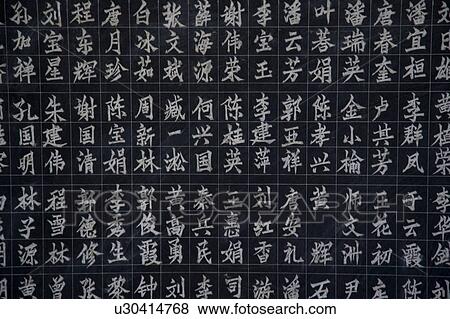 孙加祥
刘宝星
程东辉
唐月珍
白冰茹
张文斌
薛海源
谢伟荣
李宝玉
潘云芳
叶茗娟
潘瑞英
唐春奎
潘宜桓
孔国明
朱建伟
谢国清
陈宝娟
周新林
臧一淞
何兴国
陈桂英
李建萍
郭亚祥
陈孝兴
金小榆
卢其芳
李群凤
黄桂荣
林子源
程雪林
德修
李秀生
郭俊霞
黄高勇
秦兵民
王惠娟
刘红香
唐安礼
辉
师文洲
王花初
于云霞
李华剑
黄
曾
张
黎
钟
刘
李
司
游
潘
石
尹
唐
© Fotosearch
u30414768 www.fotosearch.com